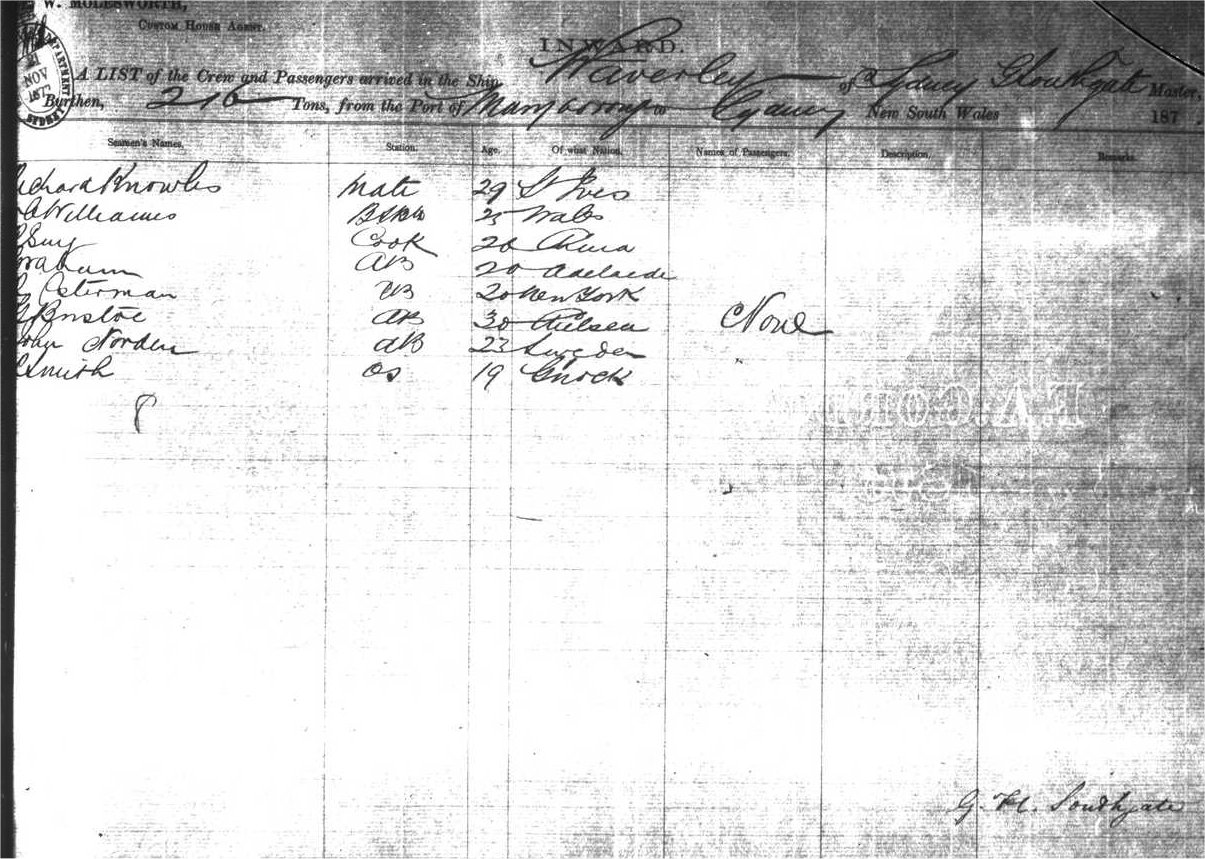 W. MOLESWORTH,
CUSTOM HOUSE AGENT.
21 NOV 187
SYDNEY
INWARD.
A LIST of the Crew and Passengers arrived in the Ship Waverley of Sydney G Southgate Master,
Burthen, 216 Tons, from the Port of Maryborough to Sydney New South Wales 187 .
Seamen's Names. Station. Age. Of what Nation. Names of Passengers. Description. Remarks.
Richard Knowles Mate 29 St Ives
Williams 25 Wales
Cook 20 China
Graham AB 20 Adelaide
Osterman AB 20 New York
Bristoe AB 30 Chelsea
John Norden AB 23 Sweden
Smith OS 19
None
8
G. H. Southgate